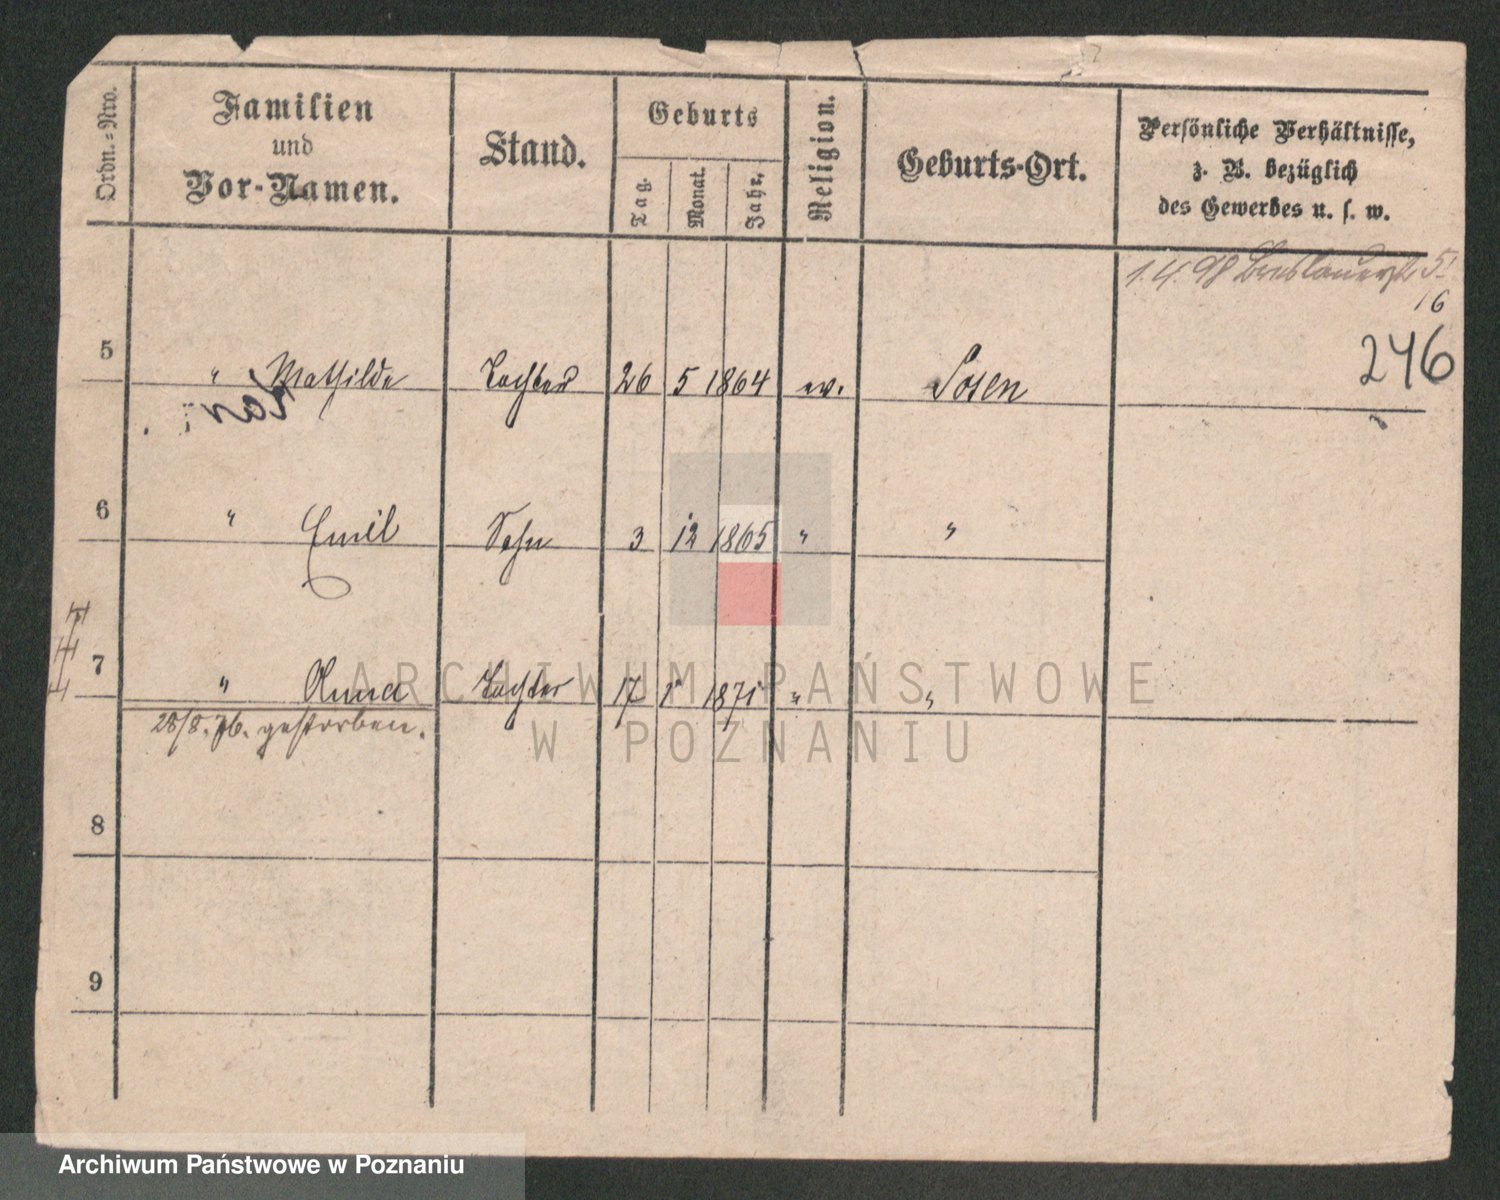 Ordn.=Nro.
Familien
und
Vor-Namen.
Stand.
Geburts
Tag.
Monat.
Jahr.
Religion.
Geburts-Ort.
Persönliche Verhältnisse,
z. B. bezüglich
des Gewerbes u. s. w.
1.4.98 Breslauerstr 5
16
246
5 " Mathilde Tochter 26 5 1864 ev. Posen
6 " Emil Sohn 3 12 1865 " "
7 " Anna Tochter 17 1 1871 " "
28/8. 76. gestorben.
8
9
ARCHIWUM PAŃSTWOWE
W POZNANIU
Archiwum Państwowe w Poznaniu